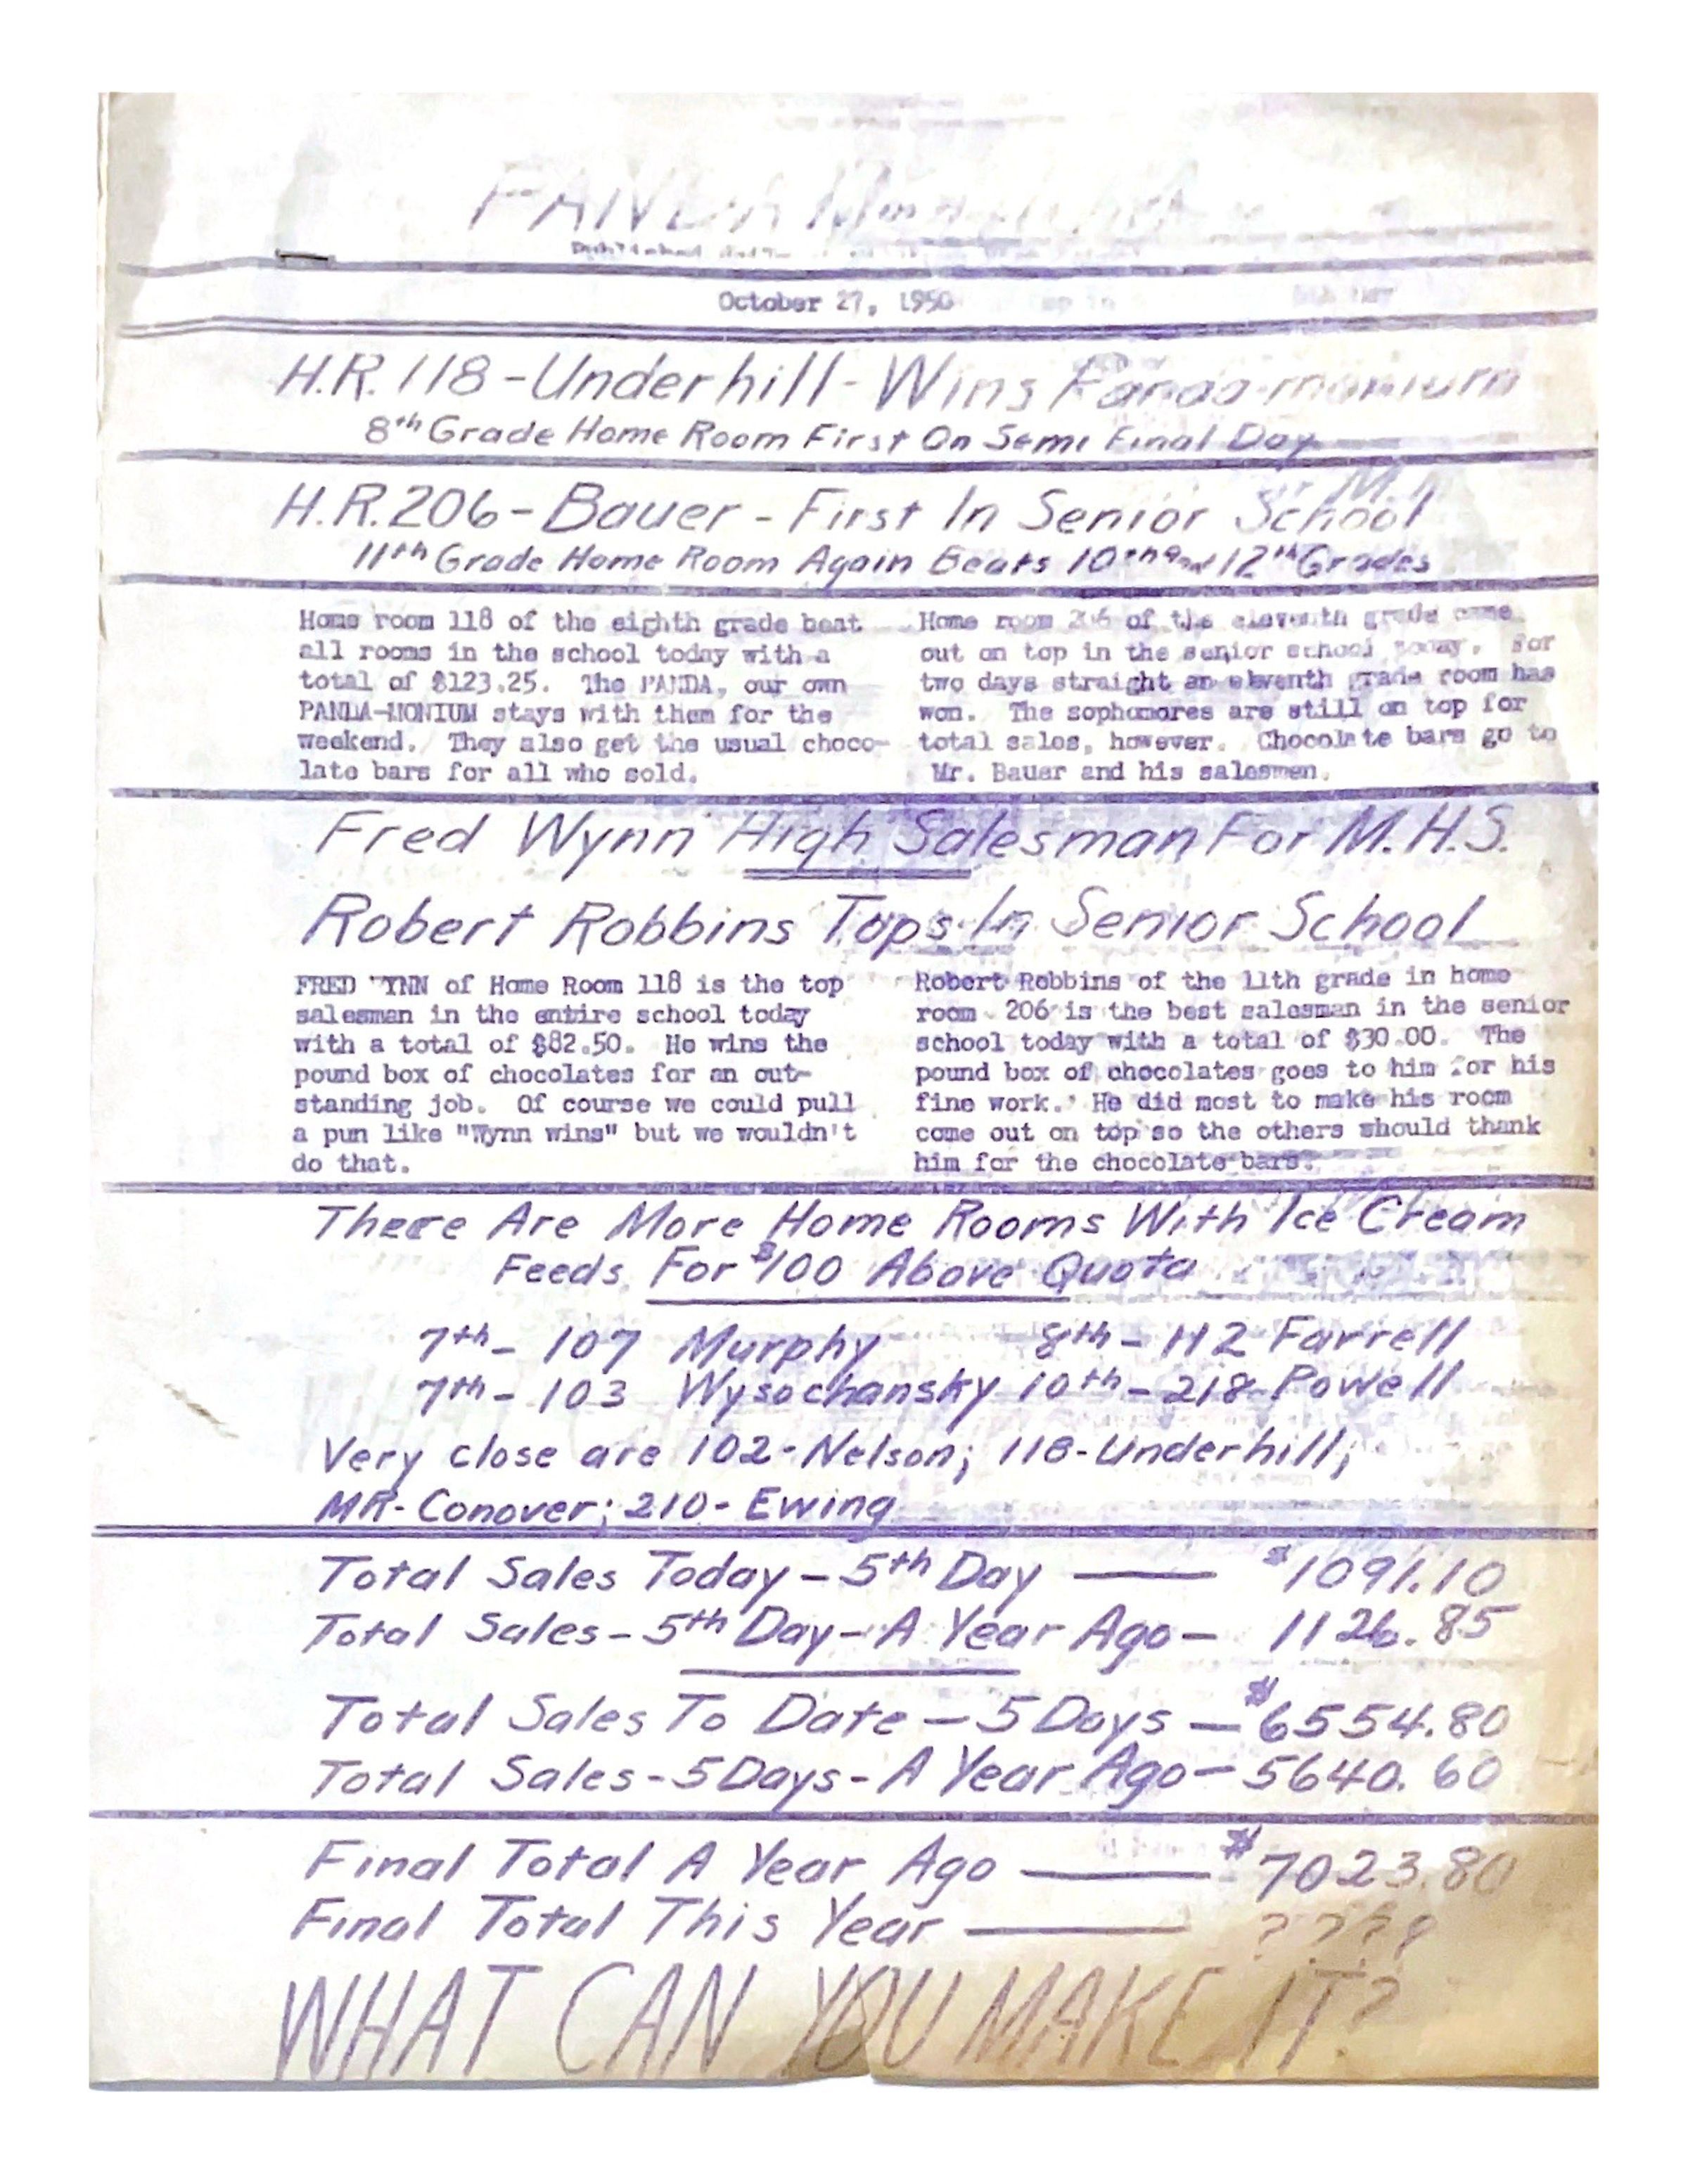 PANDA
October 27, 1950
H.R. 118 - Underhill - Wins Panda-monium
8th Grade Home Room First On Semi Final Day
H.R. 206 - Bauer - First In Senior School
11th Grade Home Room Again Beats 10th and 12th Grades
Home room 118 of the eighth grade beat
all rooms in the school today with a
total of $123.25. The PANDA, our own
PANDA-MONIUM stays with them for the
weekend. They also get the usual choco-
late bars for all who sold.
Home room 206 of the eleventh grade came
out on top in the senior school today. For
two days straight an eleventh grade room has
won. The sophomores are still on top for
total sales, however. Chocolate bars go to
Mr. Bauer and his salesmen.
Fred Wynn High Salesman For M.H.S.
Robert Robbins Tops In Senior School
FRED YNN of Home Room 118 is the top
salesman in the entire school today
with a total of $82.50. He wins the
pound box of chocolates for an out-
standing job. Of course we could pull
a pun like "Wynn wins" but we wouldn't
do that.
Robert Robbins of the 11th grade in home
room 206 is the best salesman in the senior
school today with a total of $30.00. The
pound box of chocolates goes to him for his
fine work. He did most to make his room
come out on top so the others should thank
him for the chocolate bars.
There Are More Home Rooms With Ice Cream
Feeds For $100 Above Quota
7th - 107 Murphy 8th - 112 Farrell
7th - 103 Wysochansky 10th - 218 - Powell
Very close are 102 - Nelson; 118 - Underhill;
MR - Conover; 210 - Ewing
Total Sales Today - 5th Day — $1091.10
Total Sales - 5th Day - A Year Ago - 1126.85
Total Sales To Date - 5 Days - $6554.80
Total Sales - 5 Days - A Year Ago - 5640.60
Final Total A Year Ago — $7023.80
Final Total This Year — ????
WHAT CAN YOU MAKE IT?